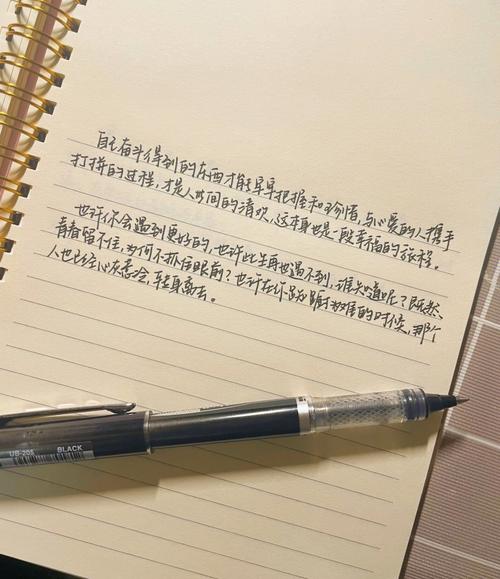 自己奋斗得到的东西才能享牢把握和珍惜，与心爱的人携手
打拼的过程，才是人世间的清欢，这本身也是一段幸福的旅程。
也许你会遇到更好的，也许此生再也遇不到，谁知道呢？既然
青春留不住，为何不抓住眼前？也许在你踟蹰为难的时候，那个
人也已经心灰意冷，转身离去。
UB-205
BLACK